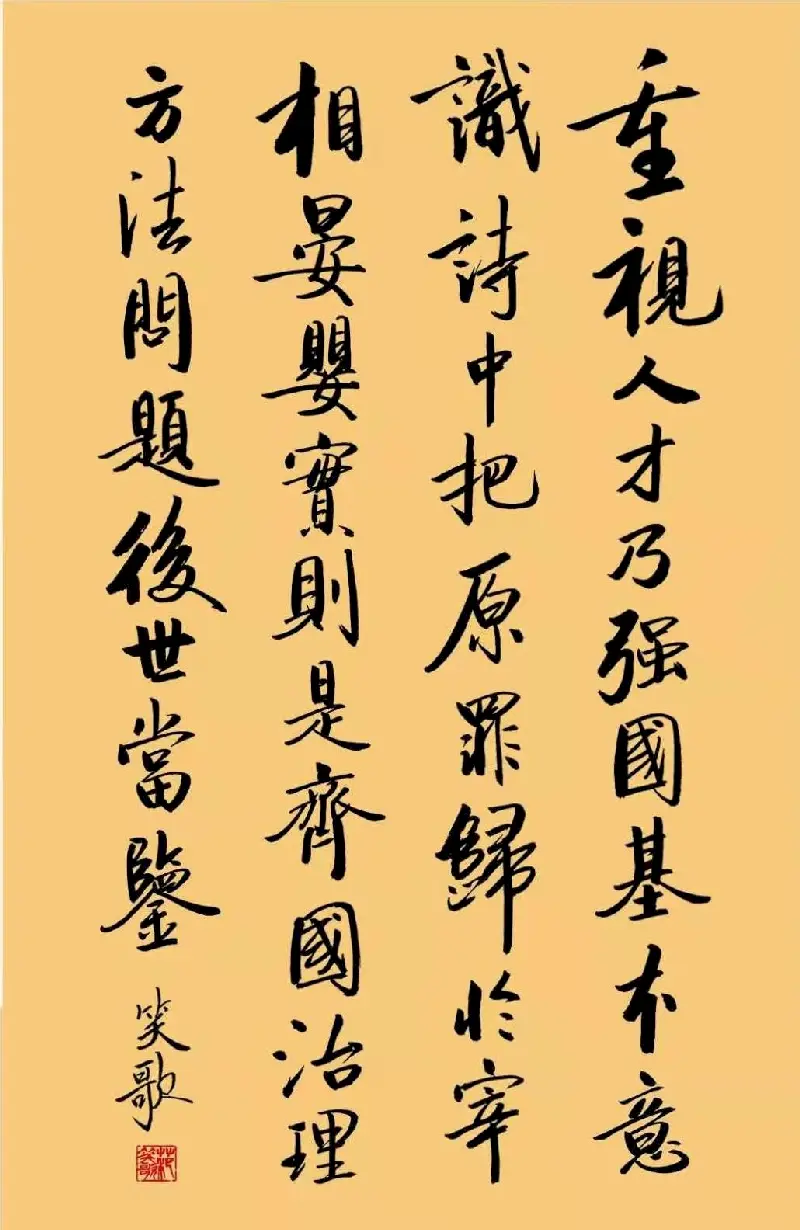 重視人才乃强國基本意
識詩中把原罪歸於宰
相晏嬰實則是齊國治理
方法問題後世當鑒
笑歌